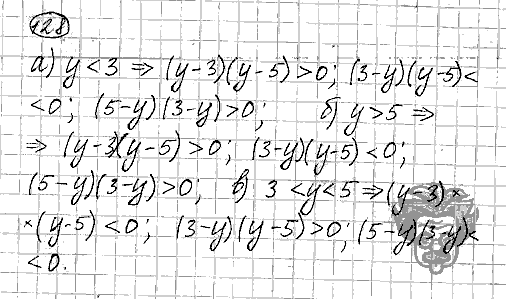 128
а) y < 3 ⇒ (y-3)(y-5) > 0; (3-y)(y-5) <
< 0; (5-y)(3-y) > 0; б) y > 5 ⇒
⇒ (y-3)(y-5) > 0; (3-y)(y-5) < 0;
(5-y)(3-y) > 0; в) 3 < y < 5 ⇒ (y-3) ×
× (y-5) < 0; (3-y)(y-5) > 0; (5-y)(3-y) <
< 0.